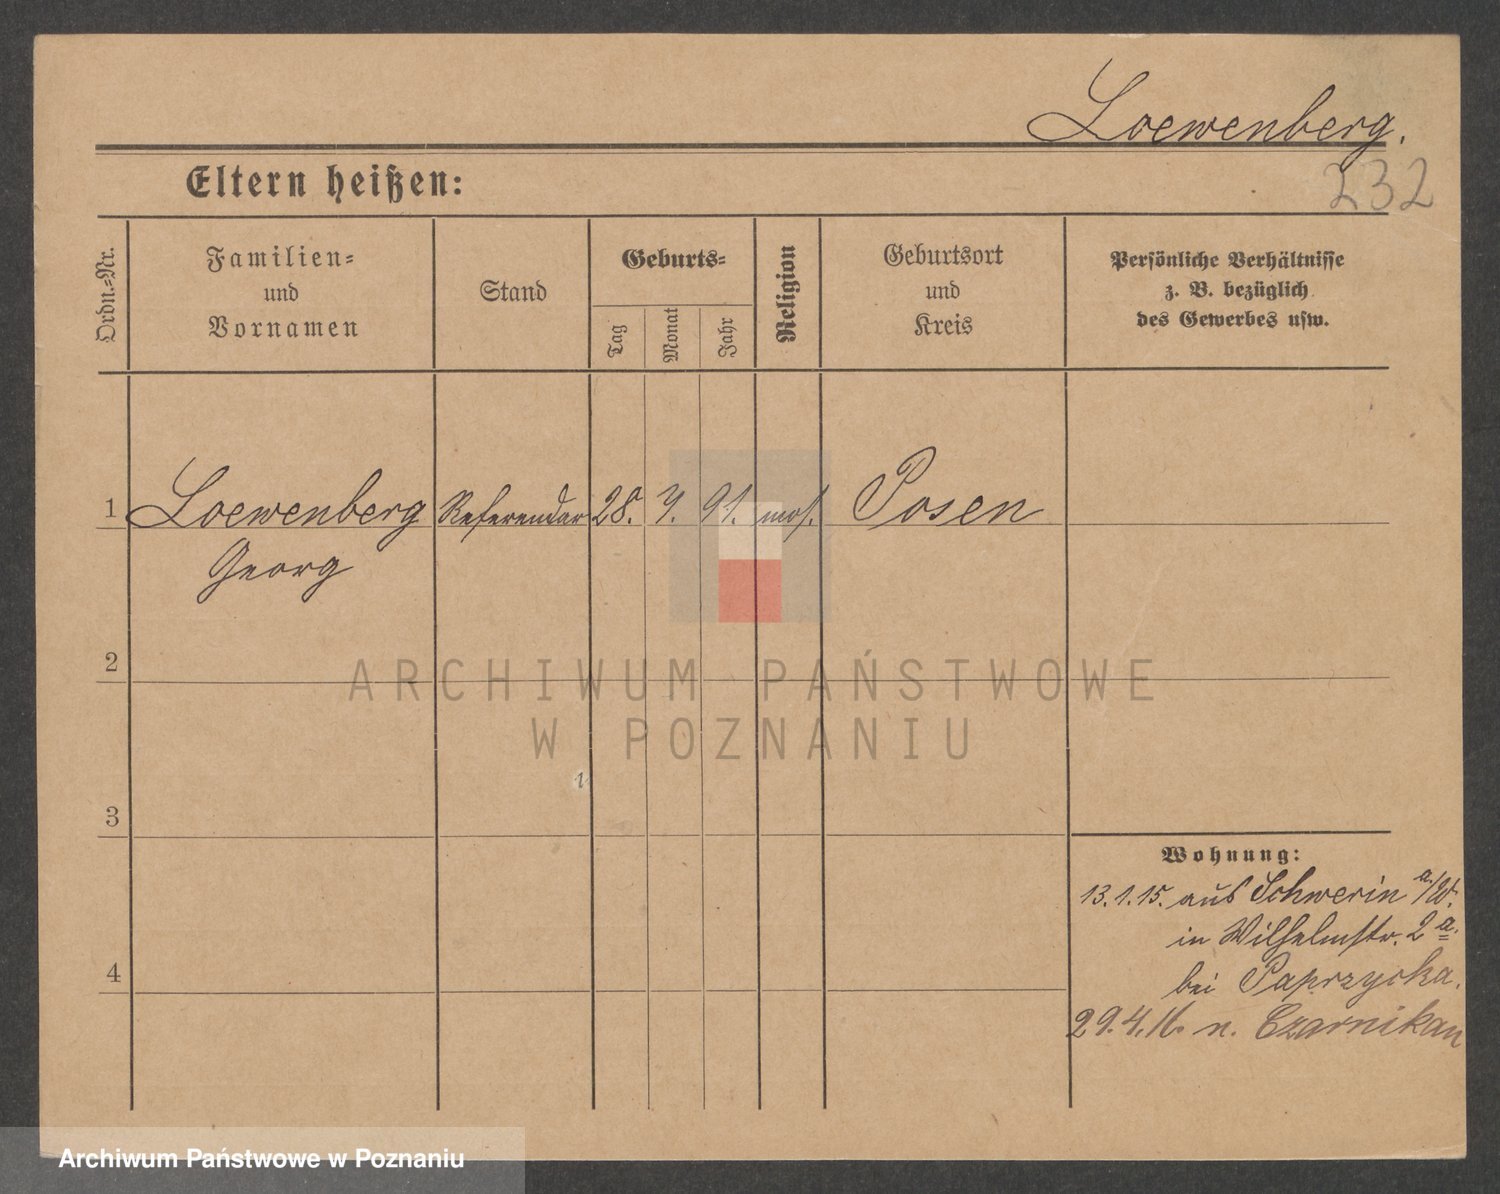 Loewenberg.
232
Eltern heißen:
Ordn.-Nr.
Familien-
und
Vornamen
Stand
Geburts-
Tag
Monat
Jahr
Religion
Geburtsort
und
Kreis
Persönliche Verhältnisse
z. B. bezüglich
des Gewerbes usw.
1 Loewenberg Referendar 28. 7. 91. mos. Posen
Georg
2
3
4
Wohnung:
13.1.15. aus Schwerin a./W.
in Wilhelmstr. 2 a.
bei Paprzycka.
29.4.16. n. Czarnikau
ARCHIWUM PAŃSTWOWE
W POZNANIU
Archiwum Państwowe w Poznaniu